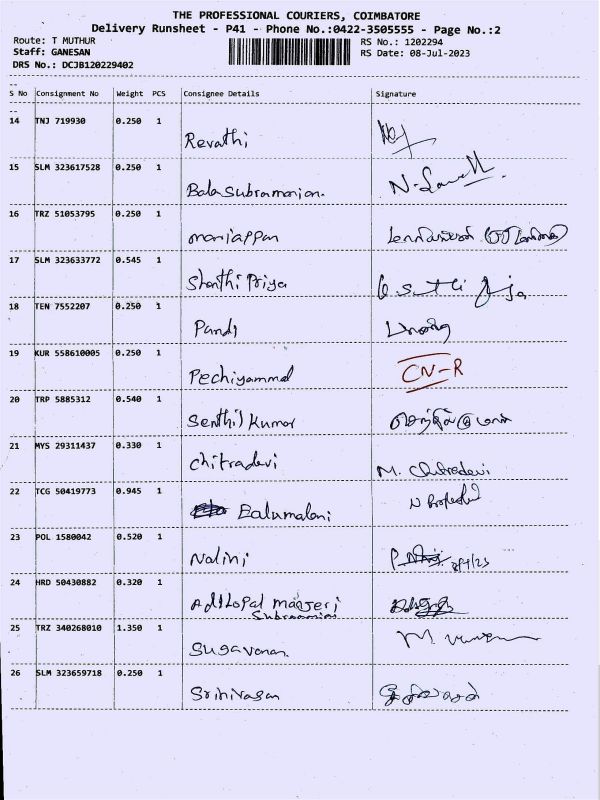 THE PROFESSIONAL COURIERS, COIMBATORE
Delivery Runsheet - P41 - Phone No.:0422-3505555 - Page No.:2
Route: T MUTHUR RS No.: 1202294
Staff: GANESAN RS Date: 08-Jul-2023
DRS No.: DCJB120229402
S No Consignment No Weight PCS Consignee Details Signature
14 TNJ 719930 0.250 1 Revathi
15 SLM 323617528 0.250 1 Balasubramanian.
16 TRZ 51053795 0.250 1 mariappan
17 SLM 323633772 0.545 1 Shanthi Priya
18 TEN 7552207 0.250 1 Pandi
19 KUR 558610005 0.250 1 Pechiyammal CN-R
20 TRP 5885312 0.540 1 Senthil Kumar
21 MYS 29311437 0.330 1 Chitradevi M. Chitradevi
22 TCG 50419773 0.945 1 Balumalani
23 POL 1580042 0.520 1 Nalini
24 HRD 50430882 0.320 1
25 TRZ 340268010 1.350 1 Sugavanan.
26 SLM 323659718 0.250 1 Srinivasan